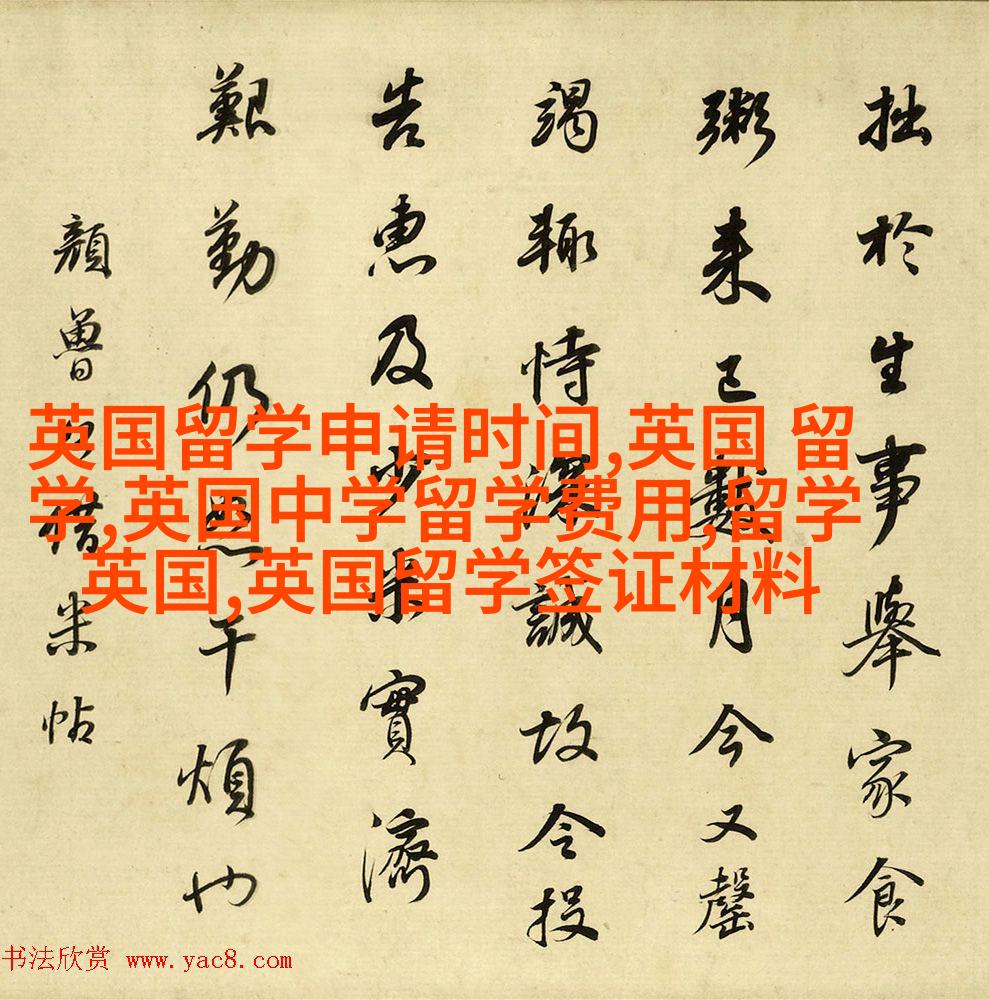 拙於生事舉家食
粥来已數月今又罄
竭輙恃深誠故令投
告惠及少米實濟
艱勤仍恕干煩也
顔魯公米帖
英国留学申请时间,英国 留
学,英国中学留学费用,留学
英国,英国留学签证材料
书法欣赏 www.yac8.com